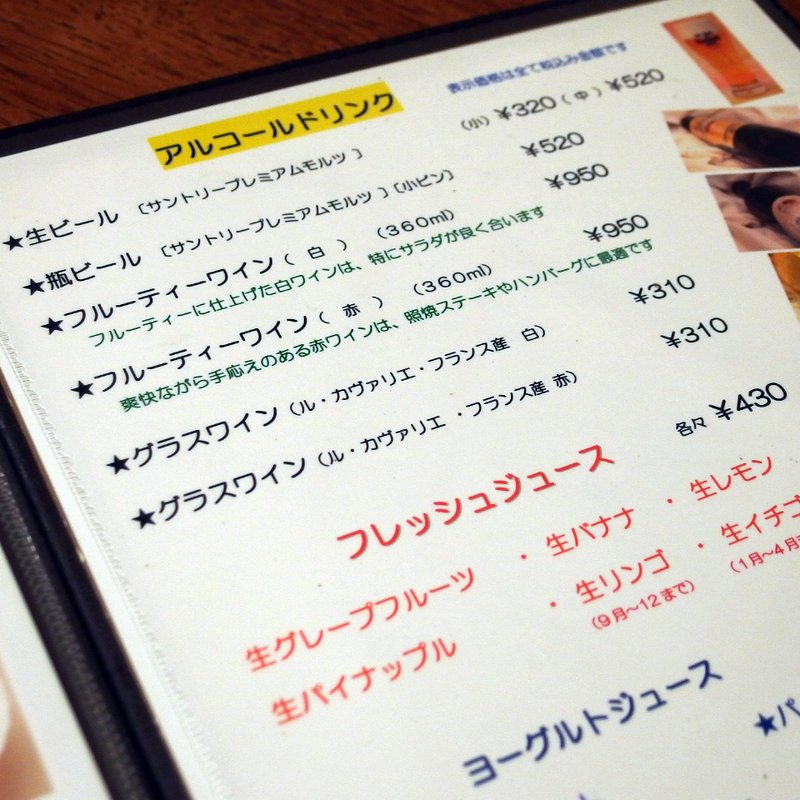 表示価格は全て税込み金額です
アルコールドリンク
★生ビール 〔サントリープレミアムモルツ 〕 (小) ¥320 (中) ¥520
★瓶ビール 〔サントリープレミアムモルツ 〕〔小ビン〕 ¥520
★フルーティーワイン ( 白 ) (360ml) ¥950
フルーティーに仕上げた白ワインは、特にサラダが良く合います
★フルーティーワイン ( 赤 ) (360ml) ¥950
爽快ながら手応えのある赤ワインは、照焼ステーキやハンバーグに最適です
★グラスワイン (ル・カヴァリエ・フランス産 白) ¥310
★グラスワイン (ル・カヴァリエ ・フランス産 赤) ¥310
フレッシュジュース 各々 ¥430
生グレープフルーツ ・ 生バナナ ・ 生レモン
生パイナップル ・ 生リンゴ ・ 生イチゴ
(9月～12まで) (1月～4月
ヨーグルトジュース
★パ